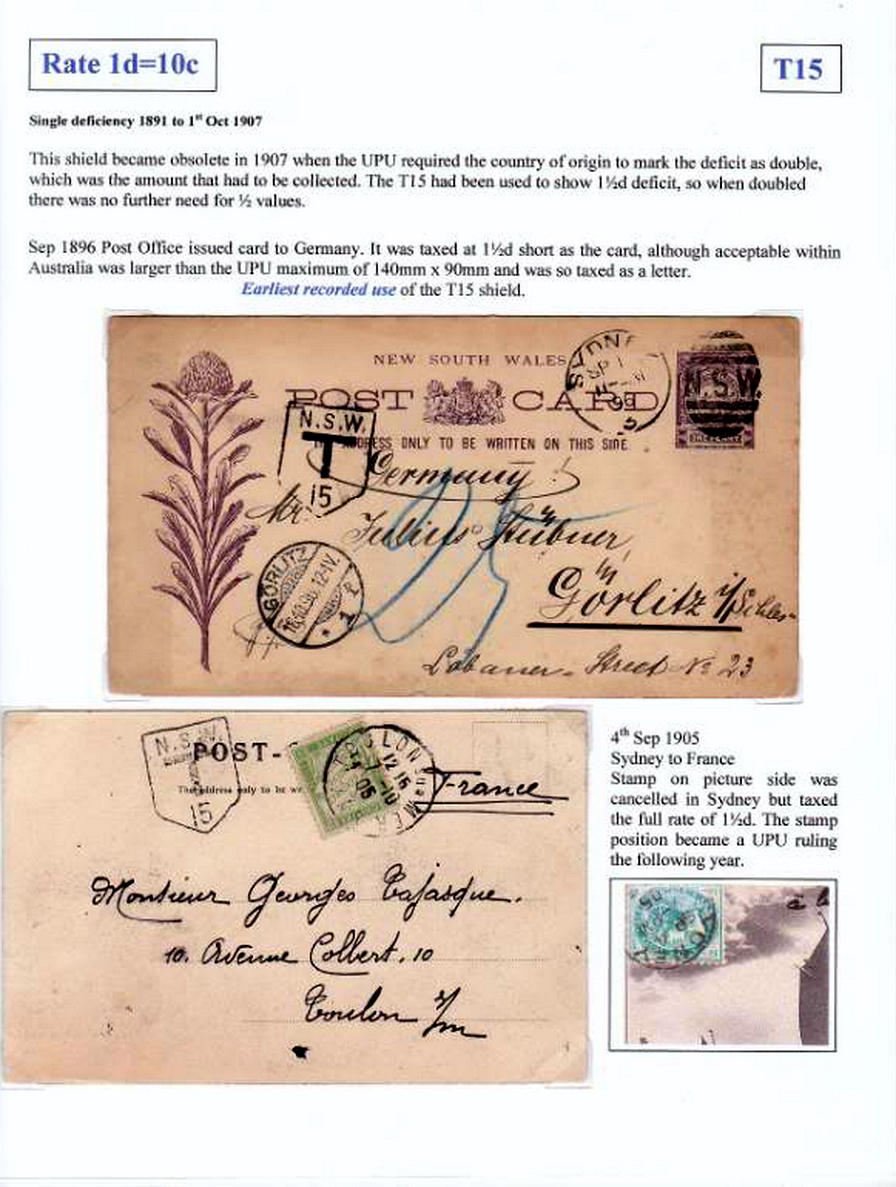 Rate 1d=10c
T15
Single deficiency 1891 to 1st Oct 1907
This shield became obsolete in 1907 when the UPU required the country of origin to mark the deficit as double,
which was the amount that had to be collected. The T15 had been used to show 1½d deficit, so when doubled
there was no further need for ½ values.
Sep 1896 Post Office issued card to Germany. It was taxed at 1½d short as the card, although acceptable within
Australia was larger than the UPU maximum of 140mm x 90mm and was so taxed as a letter.
Earliest recorded use of the T15 shield.
NEW SOUTH WALES
SYDNEY
N.S.W.
POST CARD
N.S.W.
T
15
ADDRESS ONLY TO BE WRITTEN ON THIS SIDE.
Germany!
Mr.
Julius Hübner
in
Görlitz i/Schles-
GÖRLITZ
25
Street No 23
4th Sep 1905
Sydney to France
Stamp on picture side was
cancelled in Sydney but taxed
the full rate of 1½d. The stamp
position became a UPU ruling
the following year.
N.S.W.
15
POST-
The address only to be
TOULON
France
Monsieur Georges
10. Avenue Colbert. 10
Toulon s/m